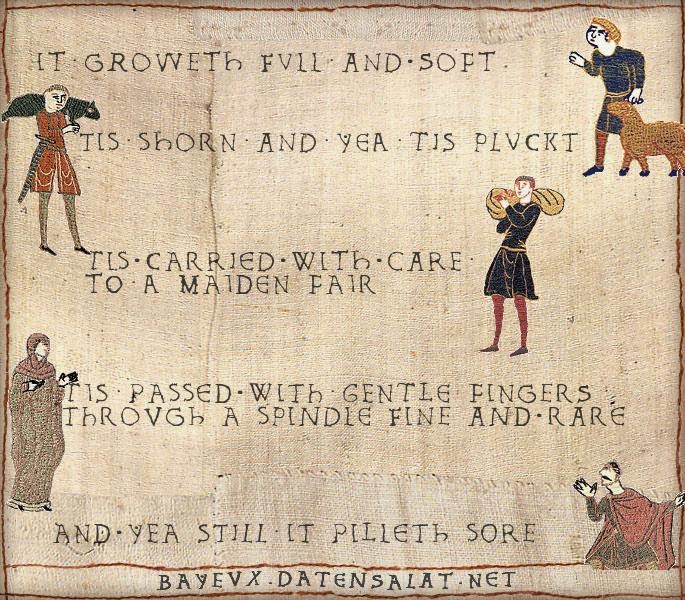 IT · GROWETh FVLL · AND · SOFT ·
TIS · ShORN · AND · YEA · TIS PLVCKT
TIS · CARRIED · WITh · CARE ·
TO · A MAIDEN FAIR
TIS · PASSED · WITh · GENTLE FINGERS
ThROVGh A SPINDLE FINE AND · RARE
AND · YEA STILL · IT PILLETh SORE
BAYEVX · DATENSALAT · NET